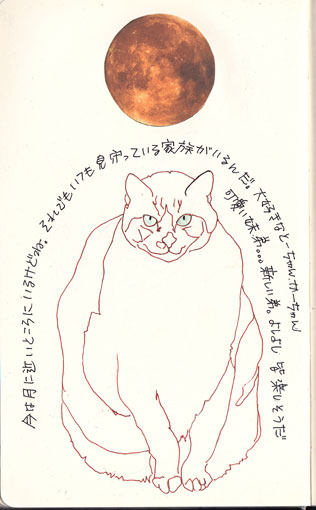 今は月に近いところにいるけどね。それでもいつも見守っている家族がいるんだ。大好きなとーちゃん、かーちゃん
可愛い妹弟。。。新しい弟。よしよし 皆楽しそうだ